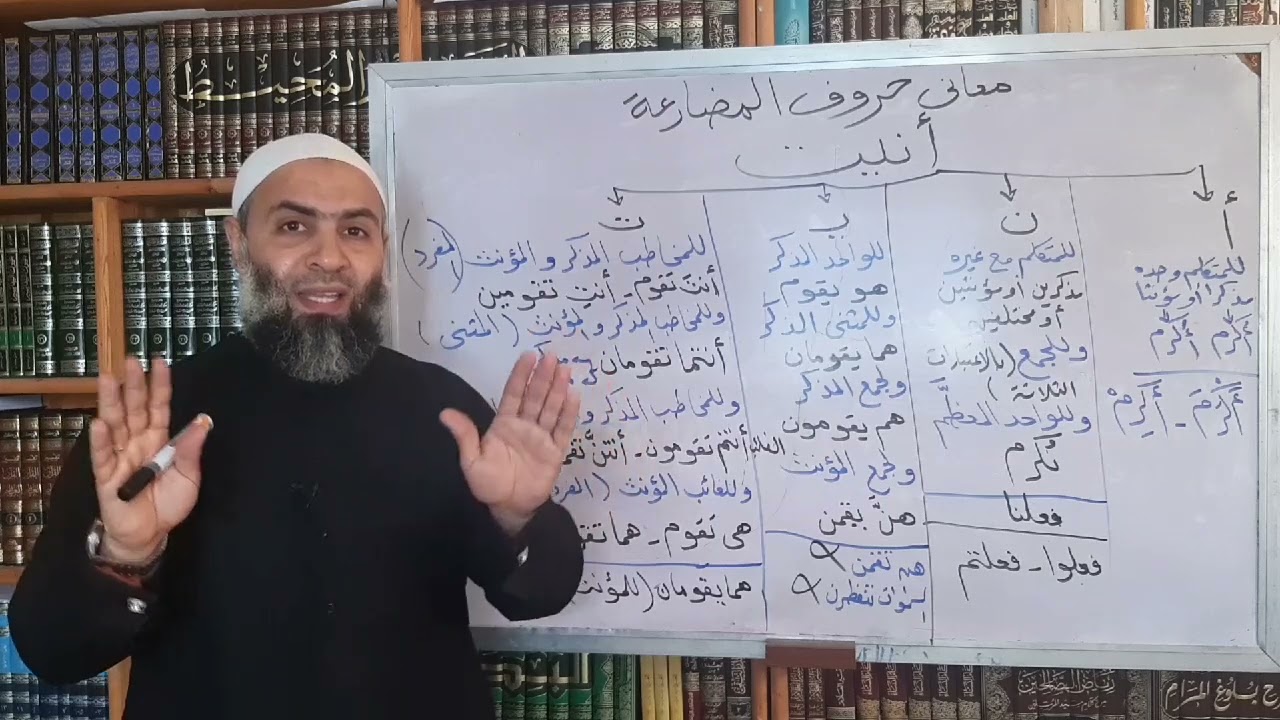 معاني حروف المضارعة
أنيت
أ
للمتكلم وحده
مذكرا أو مؤنثا
أُكرِم أُكرِم
أَكْرَمَ - أَكرِمْ
ن
للمتكلم مع غيره
مذكرين أو مؤنثين
أو مختلفين
وللجمع (بالاعتبارات
الثلاثة)
وللواحد المعظَّم
نُكرم
فعلنا
فعلوا - فعلتم
يـ
للواحد المذكر
هو يقوم
وللمثنى المذكر
هما يقومان
ولجمع المذكر
هم يقومون
ولجمع المؤنث الغائب
هنَّ يقمن
هن تقمن
السموات تتفطرن
ت
للمخاطب المذكر والمؤنث (المفرد)
أنتَ تقوم - أنتِ تقومين
وللمخاطب المذكر والمؤنث (المثنى)
أنتما تقومان
وللمخاطب المذكر و
أنتم تقومون - أنتنَّ
وللغائب المؤنث
هي تقوم - هما
هما يقومان (للمؤنث
المحيط
رياض الصالحين
بلوغ المرام